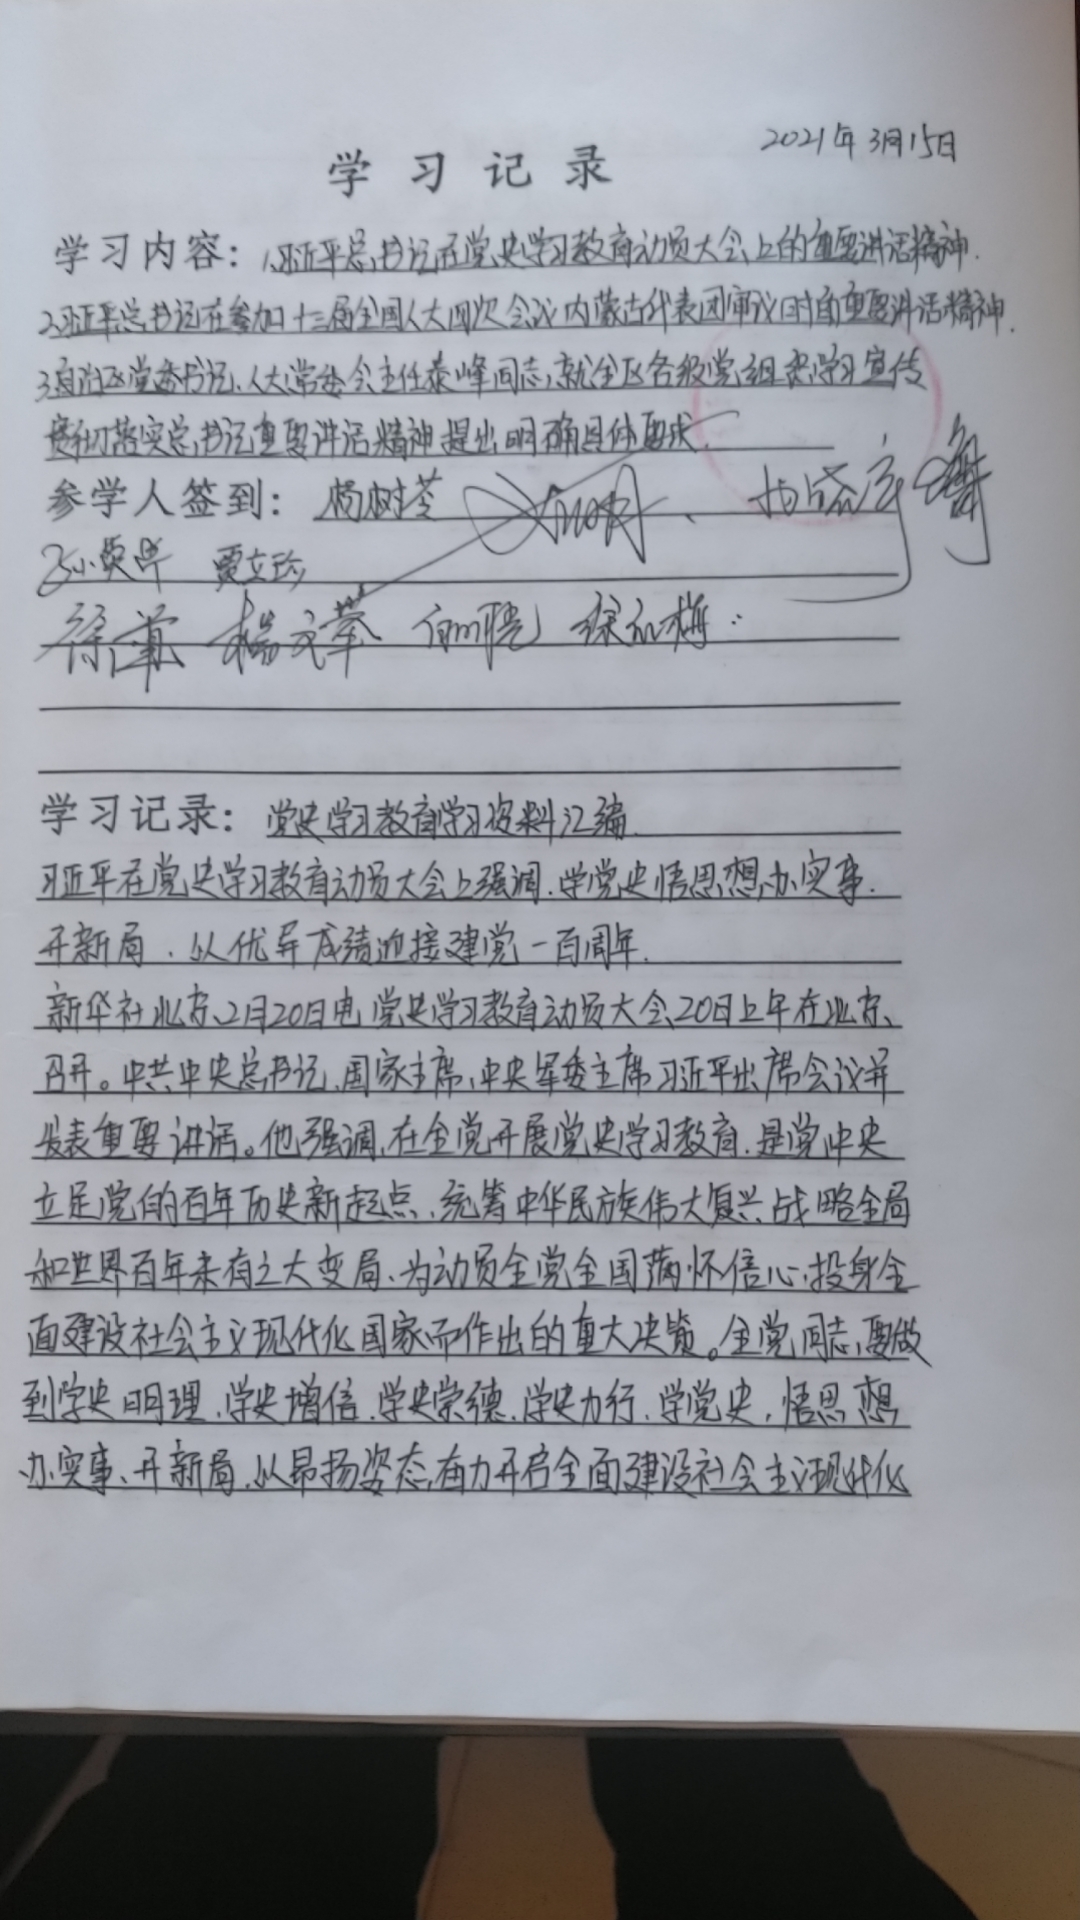 2021年3月15日
学习记录
学习内容：1、习近平总书记在党史学习教育动员大会上的重要讲话精神.
2、习近平总书记在参加十三届全国人大四次会议内蒙古代表团审议时的重要讲话精神.
3、自治区党委书记、人大常委会主任泰峰同志,就全区各级党组织学习宣传
贯彻落实总书记重要讲话精神提出明确具体要求.
参学人签到：杨树苓
贾立珍
徐 杨文 白 徐 梅
学习记录：党史学习教育学习资料汇编.
习近平在党史学习教育动员大会上强调.学党史悟思想.办实事.
开新局.以优异成绩迎接建党一百周年.
新华社北京、2月20日电 党史学习教育动员大会20日上午在北京、
召开。中共中央总书记、国家主席、中央军委主席习近平出席会议并
发表重要讲话。他强调,在全党开展党史学习教育.是党中央
立足党的百年历史新起点、统筹中华民族伟大复兴战略全局
和世界百年未有之大变局、为动员全党全国满怀信心,投身全
面建设社会主义现代化国家而作出的重大决策。全党同志,要做
到学史明理、学史增信、学史崇德、学史力行、学党史，悟思想
办实事、开新局、以昂扬姿态,奋力开启全面建设社会主义现代化